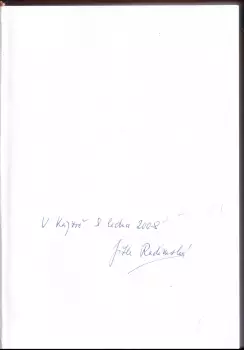 V Kyjově 8 ledna 2008
Jitka Radimská